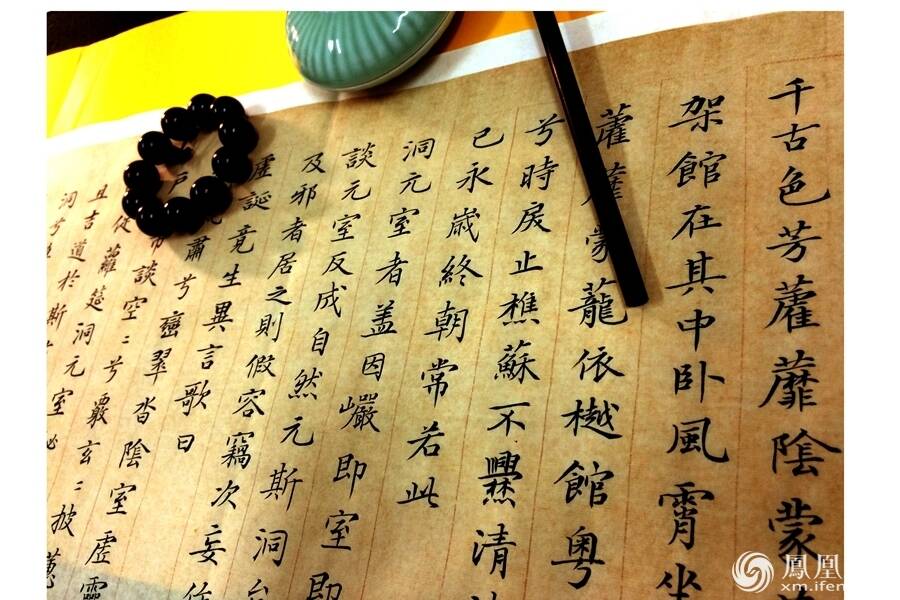 千古色芳藿蘼陰蒙
架館在其中卧風霄坐
藿蘼蒙蘢依樾館粤
兮時戾止樵蘇不爨清
已永歲終朝常若此
洞元室者盖因巗即室即
談元室反成自然元斯洞
及邪者居之則假容竊次妄作
虛誕竟生異言歌曰
肅兮巒翠沓陰室虛靈
談空〻兮覈玄〻披蕙
從蘿筵洞元室秘
且吉道於斯
洞兮
鳳凰
xm.ifen